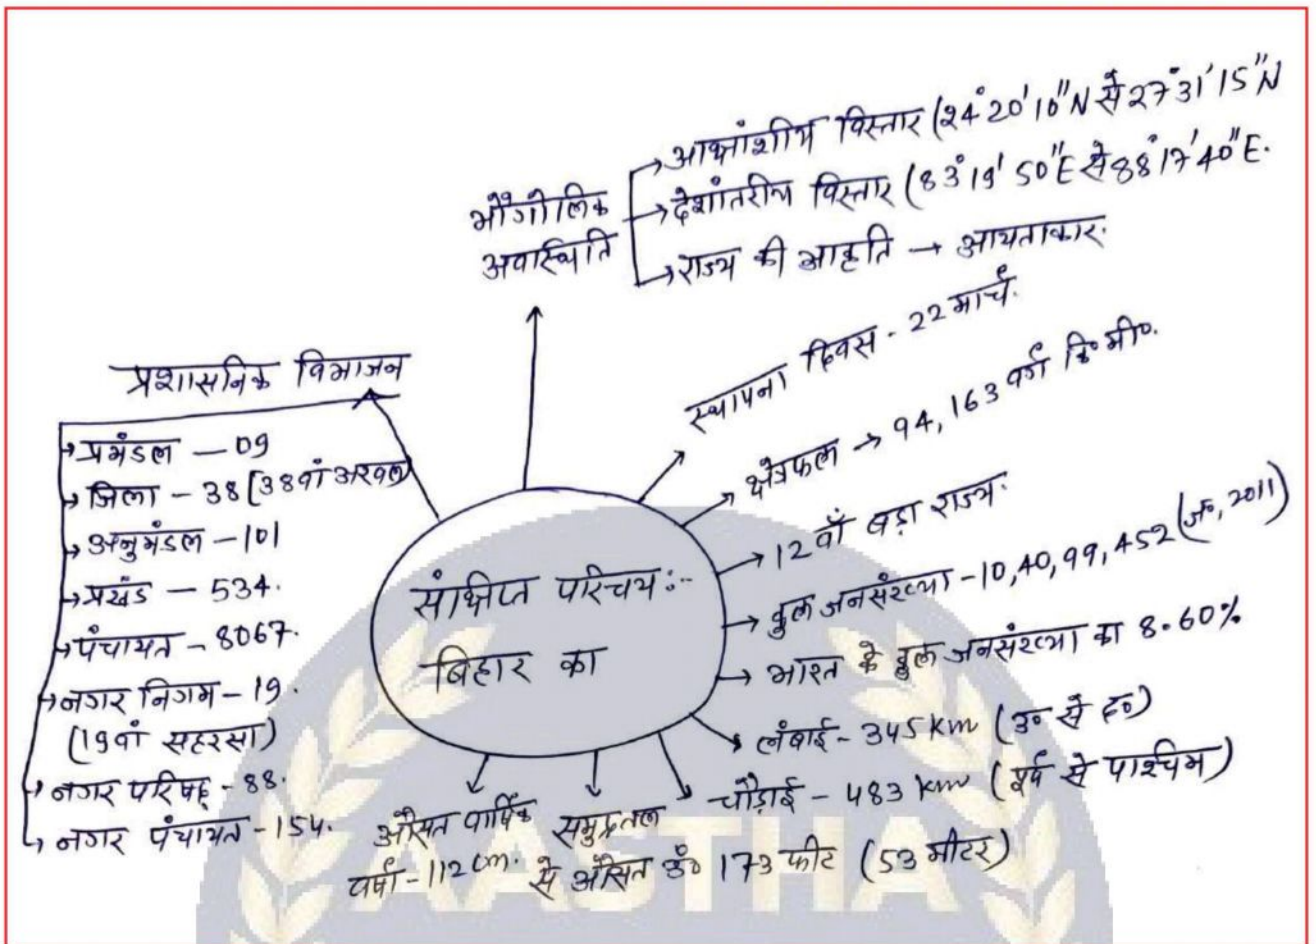 भौगोलिक
अवस्थिति
→ आक्षांशीय विस्तार (24°20'10"N से 27°31'15"N
→ देशांतरीय विस्तार (83°19'50"E से 88°17'40"E.
→ राज्य की आकृति → आयताकार.
स्थापना दिवस - 22 मार्च.
क्षेत्रफल → 94,163 वर्ग कि॰मी॰.
→ 12 वाँ बड़ा राज्य.
→ कुल जनसंख्या - 10,40,99,452 (ज॰, 2011)
→ भारत के कुल जनसंख्या का 8.60%
लंबाई - 345 km (उ॰ से द॰)
चौड़ाई - 483 km (पूर्व से पश्चिम)
समुद्रतल
से औसत ऊँ॰ 173 फीट (53 मीटर)
औसत वार्षिक
वर्षा - 112 cm.
प्रशासनिक विभाजन
→ प्रमंडल — 09
→ जिला - 38 [38वां अरवल]
→ अनुमंडल — 101
→ प्रखंड — 534.
→ पंचायत - 8067.
→ नगर निगम - 19.
(19वां सहरसा)
→ नगर परिषद् - 88.
→ नगर पंचायत - 154.
संक्षिप्त परिचय :-
बिहार का
AASTHA